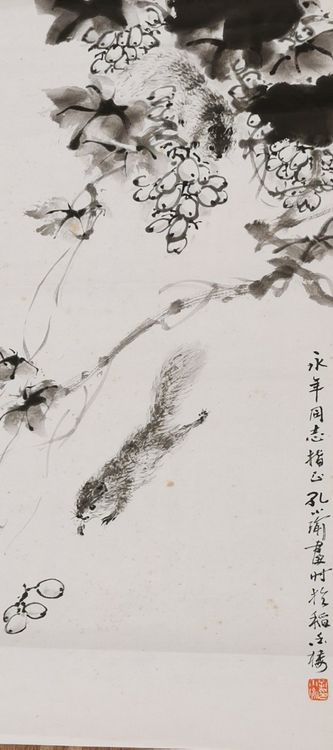 永年同志指正孔小瑜畫时於稻香楼